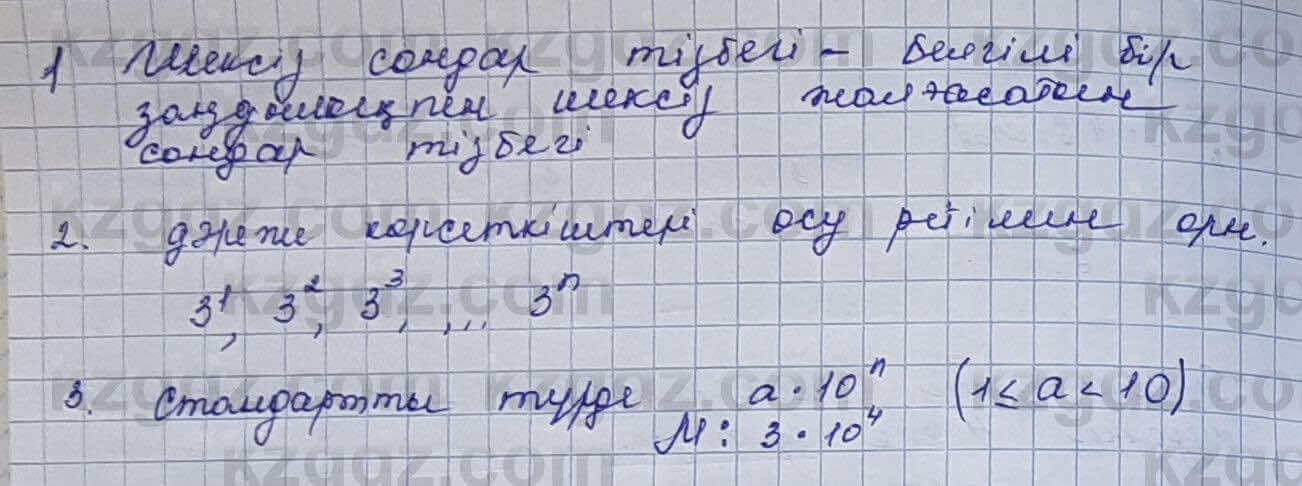 1 Шексіз сандар тізбегі - белгілі бір
заңдылықпен шексіз жалғасатын
сандар тізбегі
2. дәреже көрсеткіштері өсу ретімен орн.
3¹, 3², 3³, ,.. 3ⁿ
3. Стандартты түрде a · 10ⁿ (1 ≤ a < 10)
М: 3 · 10⁴
kzgdz.com